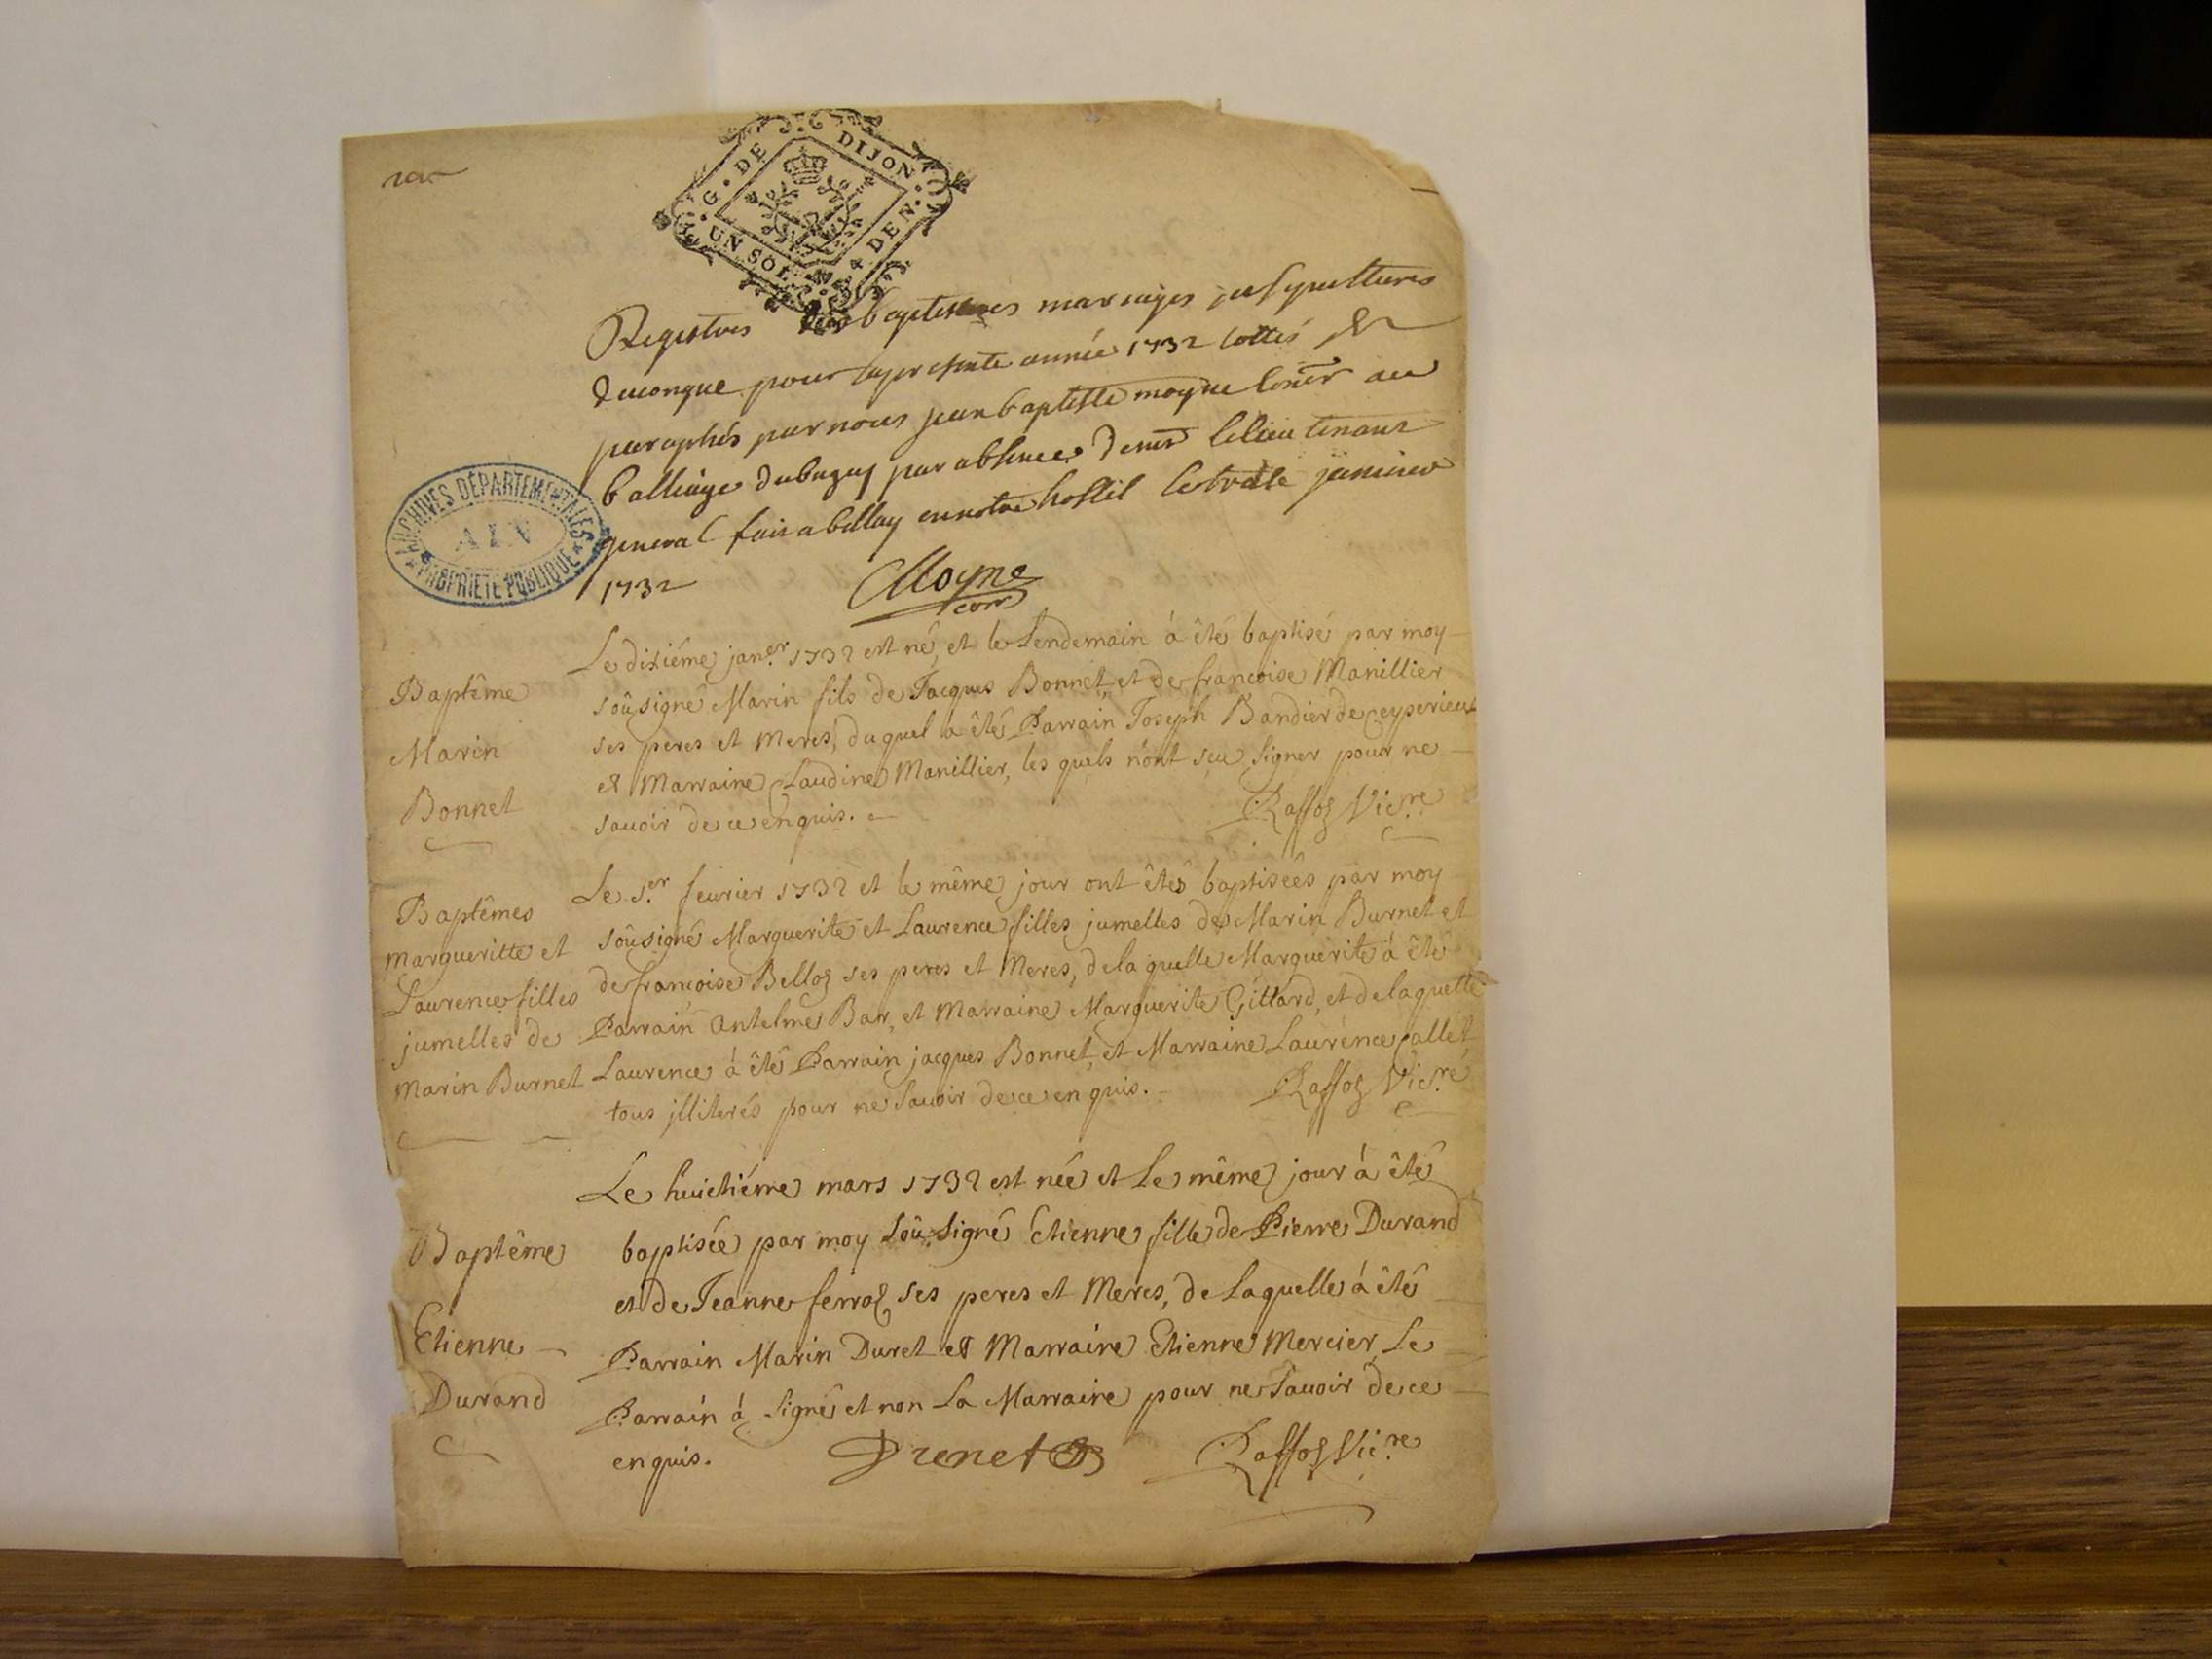 G. DE DIJON
UN SOL 4 DEN.
Registres des baptesmes mariages et sepultures
de conque pour la presente année 1732 cottés et
paraphés par nous jean baptiste moyne conser au
balliage dubugey par absence de mr le lieutenant
general fait a bellay en notre hostel le trese janvier
1732
Moyne
ARCHIVES DÉPARTEMENTALES
AIN
PROPRIÉTÉ PUBLIQUE
Baptême
Marin
Bonnet
Le dixiéme janer 1732 est né, et le Lendemain à êté baptisé par moy
soûsigné Marin fils de Jacques Bonnet, et de francoise Manillier
ses peres et Meres, duquel a êté Parrain Joseph Bandier de ceyserieux
et Marraine Claudine Manillier, les quels n'ont scu signer pour ne
sauoir de ce enquis.
Raffoz Vicre
Baptêmes
margueritte et
Laurence filles
jumelles de
Marin Burnet
Le 1.er feurier 1732 et le même jour ont êtés baptisées par moy
soûsigné Marguerite et Laurence filles jumelles de Marin Burnet et
de francoise Belloz ses peres et Meres, de la quelle Marguerite à êté
Parrain Antelme Bar, et Marraine Marguerite Gillard, et de laquelle
Laurence à êté Parrain jacques Bonnet, et Marraine Laurence Callet
tous jlliterés pour ne Sauoir de ce en quis.
Raffoz Vicre
Baptême
Etienne
Durand
Le huictiéme mars 1732 est née et Le même jour à êté
baptisée par moy soûsigné Etienne fille de Pierre Durand
et de Jeanne ferroz ses peres et Meres, de Laquelle à êté
Parrain Marin Duret et Marraine Etienne Mercier, Le
Parrain à signé et non La Marraine pour ne Sauoir de ce
enquis.
Raffoz Vicre